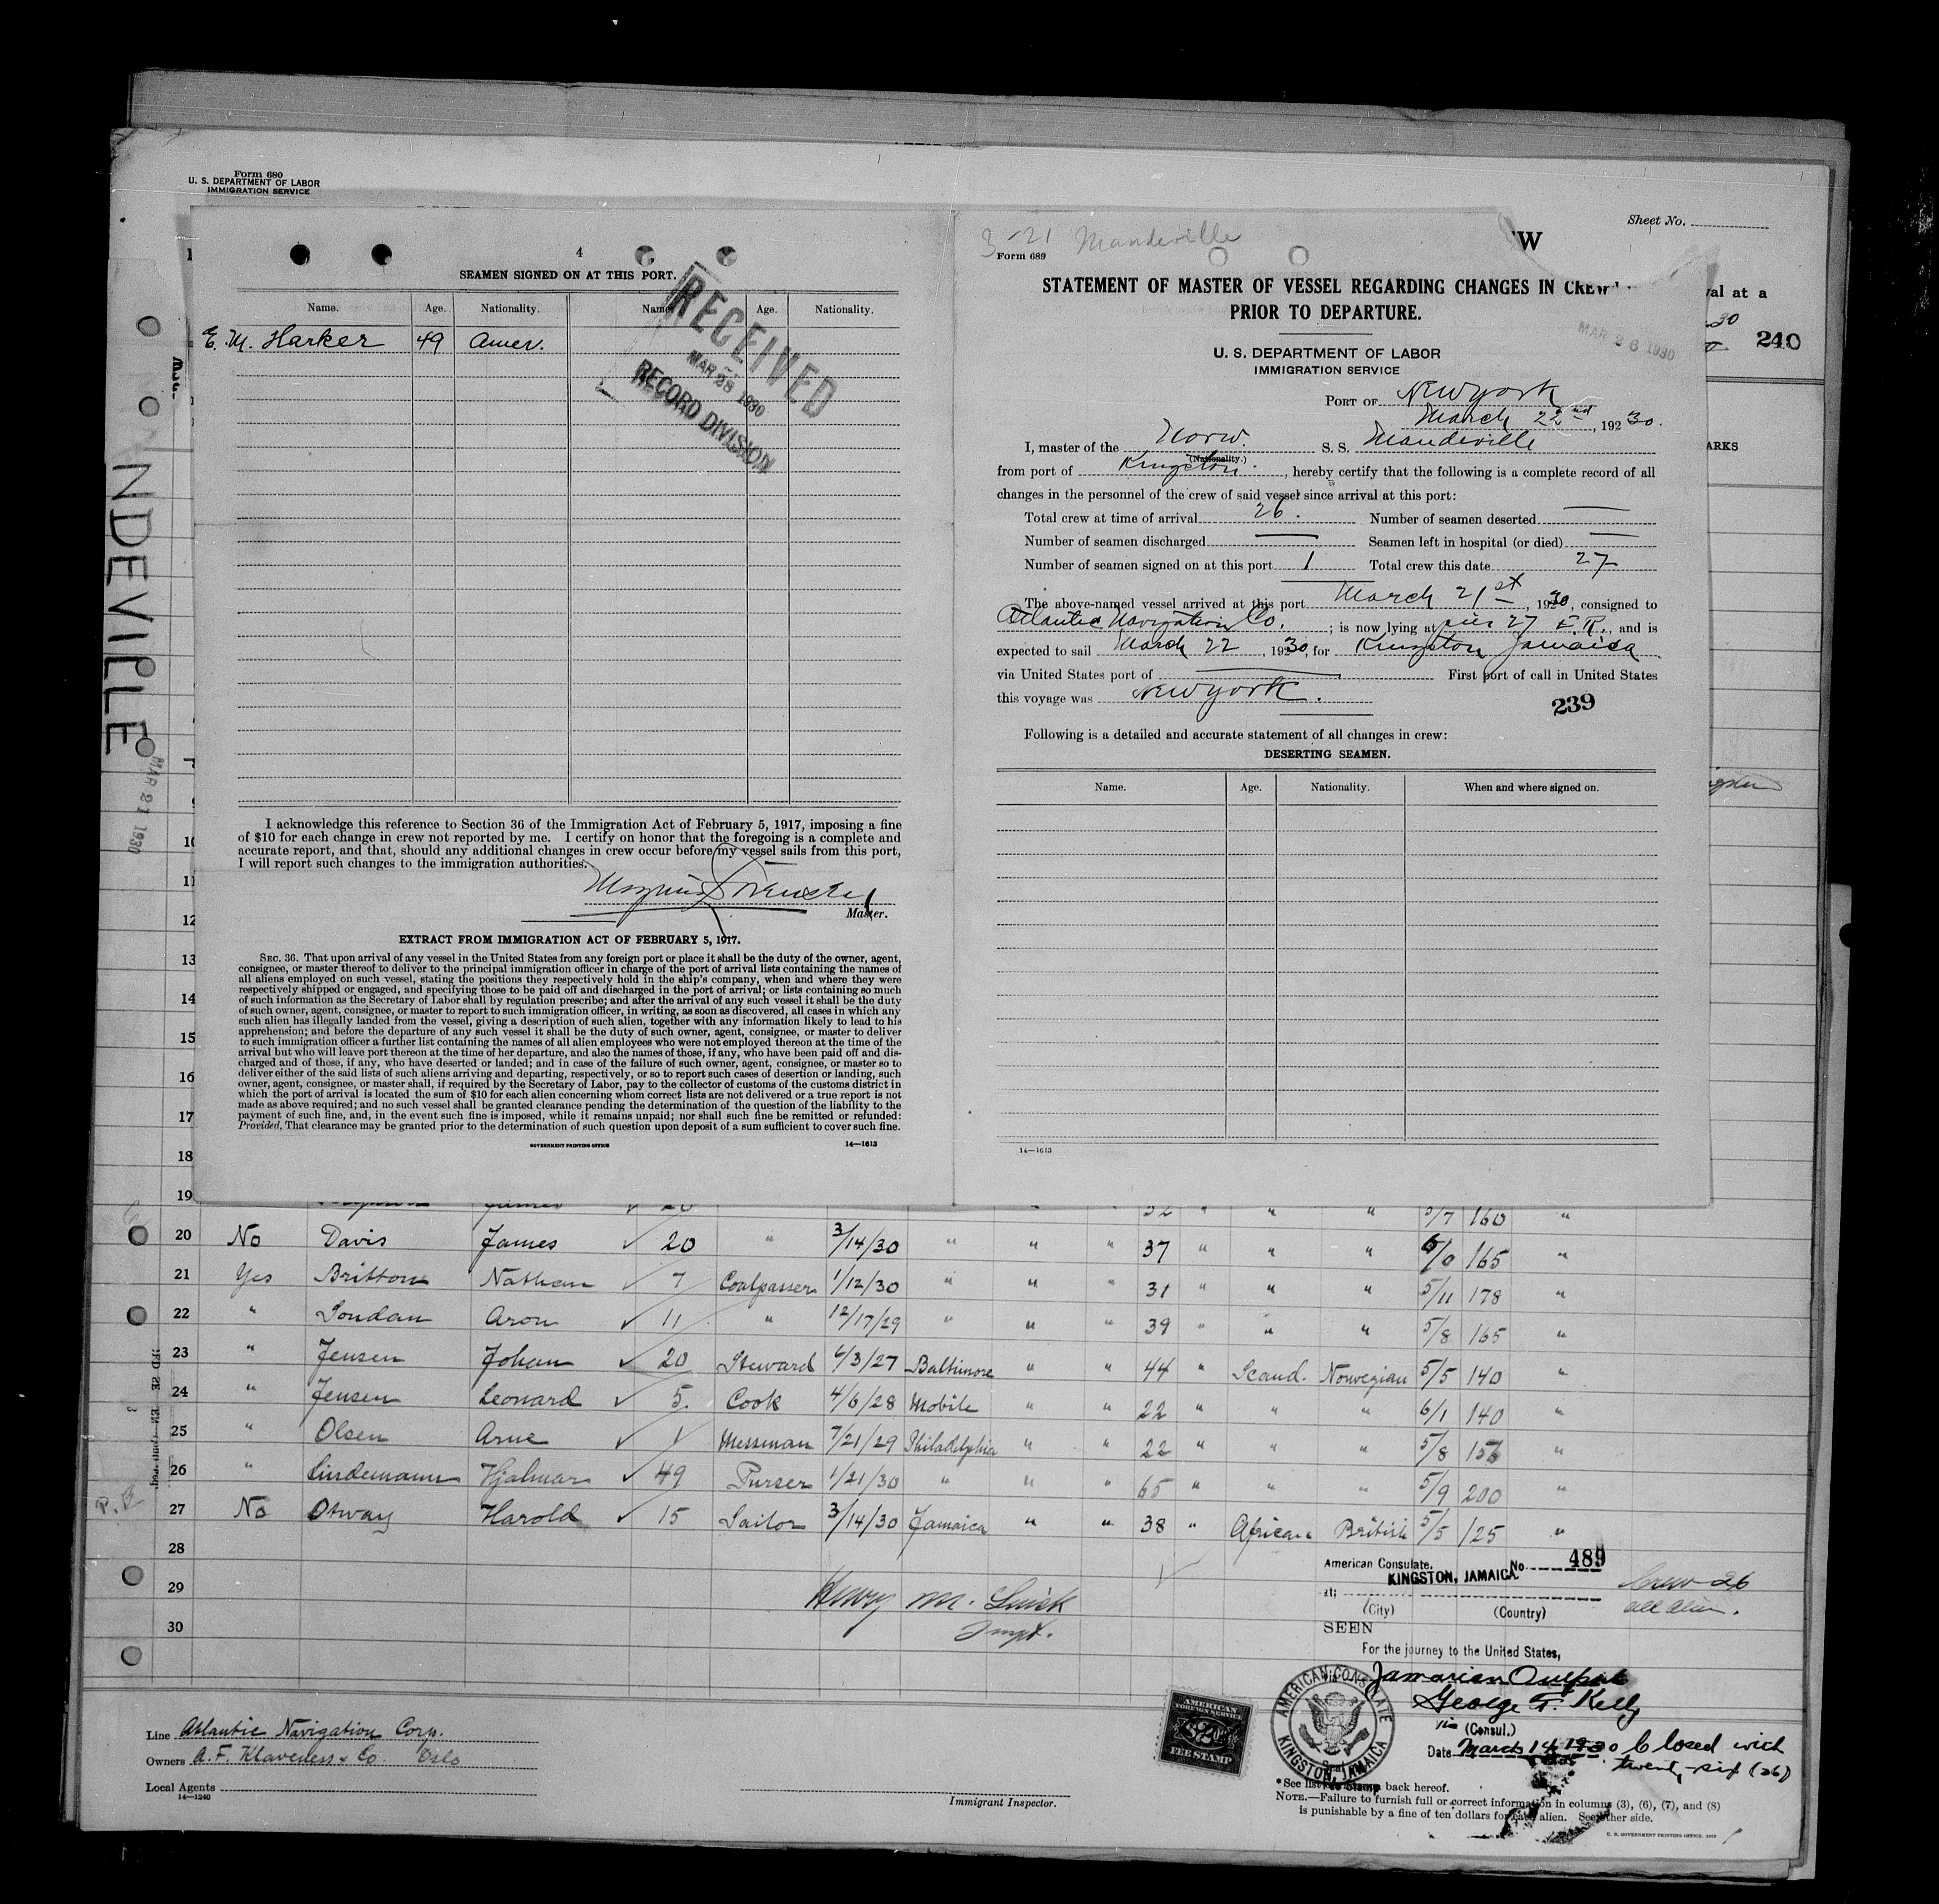 Form 680
U. S. DEPARTMENT OF LABOR
IMMIGRATION SERVICE
Sheet No.
val at a
30
240
ARKS
NDEVILLE
MAR 21 1930
4
SEAMEN SIGNED ON AT THIS PORT.
Name. Age. Nationality. Name. Age. Nationality.
E. M. Harker 49 Amer.
RECEIVED
MAR 28 1930
RECORD DIVISION
I acknowledge this reference to Section 36 of the Immigration Act of February 5, 1917, imposing a fine
of $10 for each change in crew not reported by me. I certify on honor that the foregoing is a complete and
accurate report, and that, should any additional changes in crew occur before my vessel sails from this port,
I will report such changes to the immigration authorities.
Master.
EXTRACT FROM IMMIGRATION ACT OF FEBRUARY 5, 1917.
SEC. 36. That upon arrival of any vessel in the United States from any foreign port or place it shall be the duty of the owner, agent,
consignee, or master thereof to deliver to the principal immigration officer in charge of the port of arrival lists containing the names of
all aliens employed on such vessel, stating the positions they respectively hold in the ship's company, when and where they were
respectively shipped or engaged, and specifying those to be paid off and discharged in the port of arrival; or lists containing so much
of such information as the Secretary of Labor shall by regulation prescribe; and after the arrival of any such vessel it shall be the duty
of such owner, agent, consignee, or master to report to such immigration officer, in writing, as soon as discovered, all cases in which any
such alien has illegally landed from the vessel, giving a description of such alien, together with any information likely to lead to his
apprehension; and before the departure of any such vessel it shall be the duty of such owner, agent, consignee, or master to deliver
to such immigration officer a further list containing the names of all alien employees who were not employed thereon at the time of the
arrival but who will leave port thereon at the time of her departure, and also the names of those, if any, who have been paid off and dis-
charged and of those, if any, who have deserted or landed; and in case of the failure of such owner, agent, consignee, or master so to
deliver either of the said lists of such aliens arriving and departing, respectively, or so to report such cases of desertion or landing, such
owner, agent, consignee, or master shall, if required by the Secretary of Labor, pay to the collector of customs of the customs district in
which the port of arrival is located the sum of $10 for each alien concerning whom correct lists are not delivered or a true report is not
made as above required; and no such vessel shall be granted clearance pending the determination of the question of the liability to the
payment of such fine, and, in the event such fine is imposed, while it remains unpaid; nor shall such fine be remitted or refunded:
Provided, That clearance may be granted prior to the determination of such question upon deposit of a sum sufficient to cover such fine.
GOVERNMENT PRINTING OFFICE 14—1613
3-21 Mandeville
Form 689
W
STATEMENT OF MASTER OF VESSEL REGARDING CHANGES IN CREW
PRIOR TO DEPARTURE.
MAR 26 1930
U. S. DEPARTMENT OF LABOR
IMMIGRATION SERVICE
PORT OF New York
March 22nd, 1930.
I, master of the Norw. S. S. Mandeville
(Nationality.)
from port of Kingston., hereby certify that the following is a complete record of all
changes in the personnel of the crew of said vessel since arrival at this port:
Total crew at time of arrival 26. Number of seamen deserted —
Number of seamen discharged — Seamen left in hospital (or died) —
Number of seamen signed on at this port 1 Total crew this date 27
The above-named vessel arrived at this port March 21st, 1930, consigned to
Atlantic Navigation Co.; is now lying at pier 27 E.R., and is
expected to sail March 22, 1930, for Kingston Jamaica
via United States port of — First port of call in United States
this voyage was New York.
239
Following is a detailed and accurate statement of all changes in crew:
DESERTING SEAMEN.
Name. Age. Nationality. When and where signed on.
14—1613
10
11
12
13
14
15
16
17
18
19 James 20 32 " " " 5/7 160 "
20 No Davis James ✓ 20 " 3/14/30 " " " 37 " " " 6/0 165 "
21 Yes Britton Nathan ✓ 7 Coalpasser 1/12/30 " " " 31 " " " 5/11 178 "
22 " Soudan Aron ✓ 11 " 12/17/29 " " " 39 " " " 5/8 165 "
23 " Jensen Johan ✓ 20 Steward 6/3/27 Baltimore " " 44 " Scand. Norwegian 5/5 140 "
24 " Jensen Leonard ✓ 5. Cook 4/6/28 Mobile " " 22 " " " 6/1 140 "
25 " Olsen Arne ✓ 1 Messman 7/21/29 Philadelphia " " 22 " " " 5/8 156 "
26 " Lindemann Hjalmar ✓ 49 Purser 1/21/30 " " " 65 " " " 5/9 200 "
27 No Otway Harold ✓ 15 Sailor 3/14/30 Jamaica " " 38 " African British 5/5 125 "
28
29
30
Henry M.
Inspt.
American Consulate, No. 489
KINGSTON, JAMAICA.
at;
(City) (Country)
Crew 26
all alien.
SEEN
For the journey to the United States,
George T. Kelly
(Consul.)
Date March 14 1930 Closed with
twenty-six (26)
AMERICAN CONSULATE
KINGSTON, JAMAICA
AMERICAN
FOREIGN SERVICE
$2
FEE STAMP
Line Atlantic Navigation Corp.
Owners A. F. Klaveness & Co. Oslo
Local Agents
14—1240
Immigrant Inspector.
*See list back hereof.
NOTE.—Failure to furnish full or correct information in columns (3), (6), (7), and (8)
is punishable by a fine of ten dollars for each alien. See other side.
U. S. GOVERNMENT PRINTING OFFICE